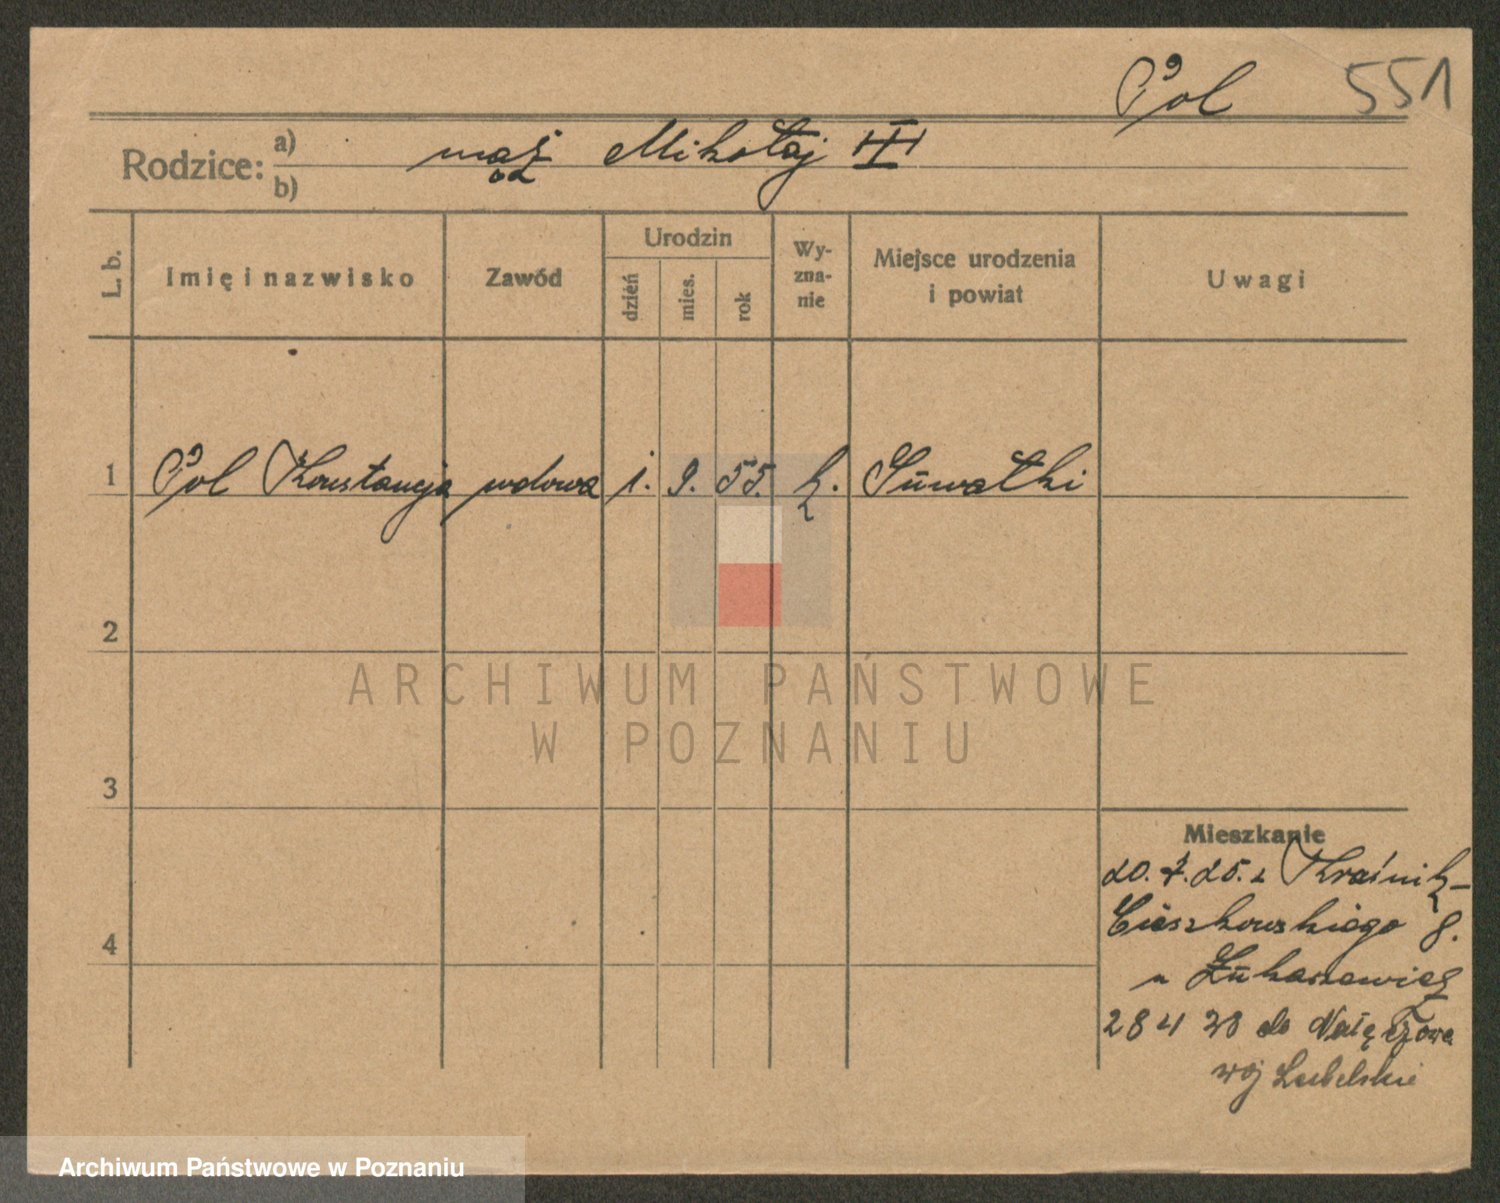 Pol 551
Rodzice: a) mąż Mikołaj
b)
L. b. Imię i nazwisko Zawód Urodzin dzień mies. rok Wy-zna-nie Miejsce urodzenia i powiat Uwagi
1 Pol Konstancja wdowa 1. 9. 55. k. Suwałki
2
ARCHIWUM PAŃSTWOWE
W POZNANIU
3
Mieszkanie
20. 7. 25. z Kraśnik
Cieszkowskiego 8.
4
u Łukaszewicz
28 4 30 do Nałęczowa
woj Lubelskie
Archiwum Państwowe w Poznaniu